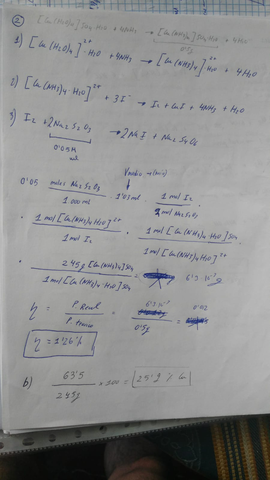 ②
[Cu(H2O)4]SO4·H2O + 4NH3 → [Cu(NH3)4]SO4·H2O + 4H2O
0'5g
1) [Cu(H2O)4]·H2O 2+ + 4NH3 → [Cu(NH3)4]·H2O 2+ + 4H2O
2) [Cu(NH3)4 H2O]2+ + 3I- → I2 + CuI + 4NH3 + H2O
3) I2 + 2Na2S2O3 → 2NaI + Na2S4O6
0'05M
0'05 moles Na2S2O3 / 1.000 ml · 1'03 ml · 1 mol I2 / 2 mol Na2S2O3
· 1 mol [Cu(NH3)4 H2O]2+ / 1 mol I2 · 1 mol [Cu(NH3)4 H2O]SO4 / 1 mol [Cu(NH3)4 H2O]2+
· 245g [Cu(NH3)4 H2O]SO4 / 1 mol [Cu(NH3)4 H2O]SO4 = 6'3·10-3
η = P. Real / P. teórico = 6'3·10-3 / 0'5g =
η = 1'26%
b) 63'5 / 245g × 100 = 25'9 % Cu